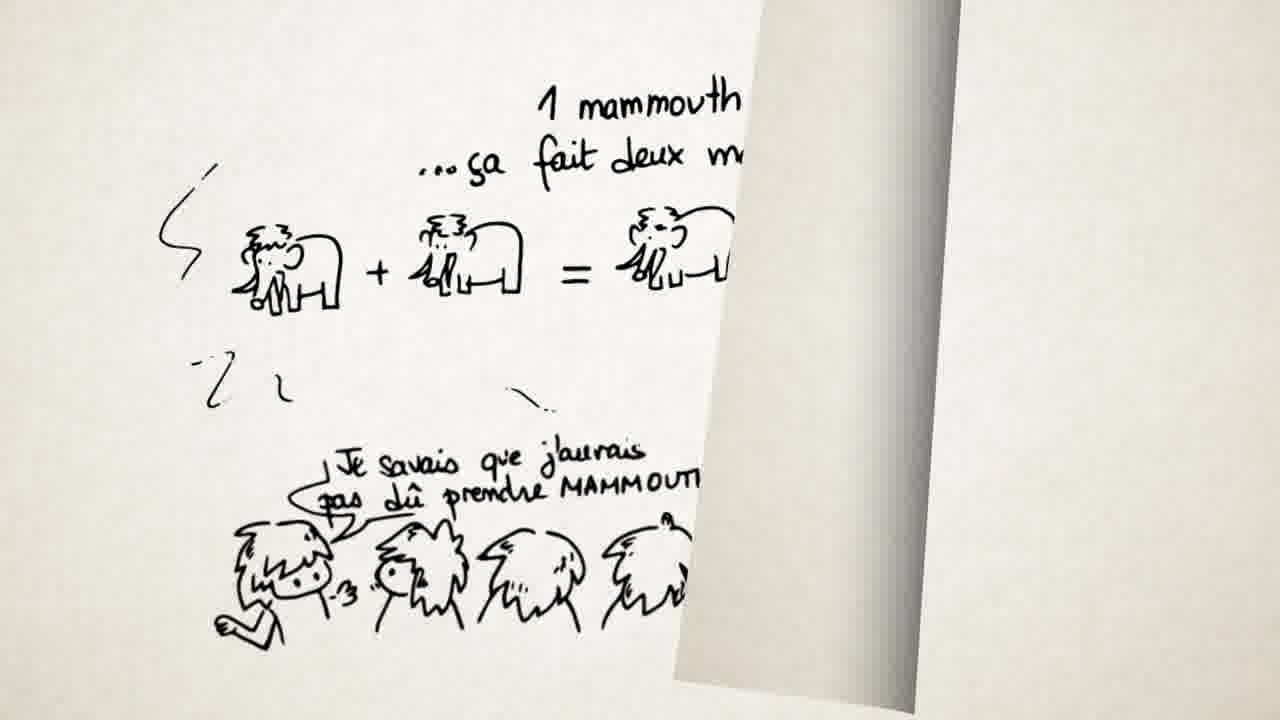 1 mammouth
...ça fait deux
+ =
Je savais que j'aurais
pas dû prendre